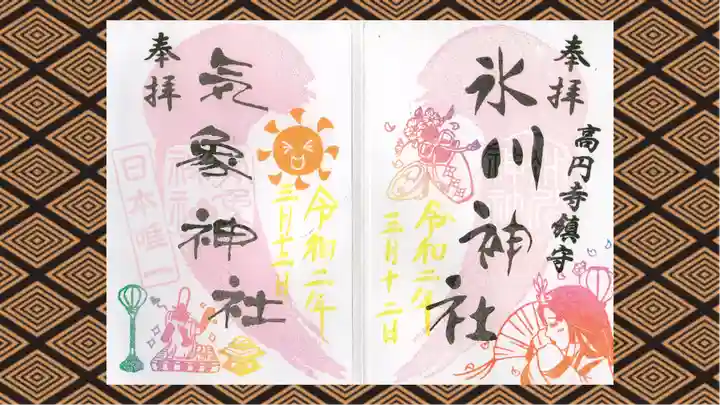 奉拝
高円寺鎮守
氷川神社
令和二年
三月十二日
奉拝
気象神社
令和二年
三月十二日
日本唯一